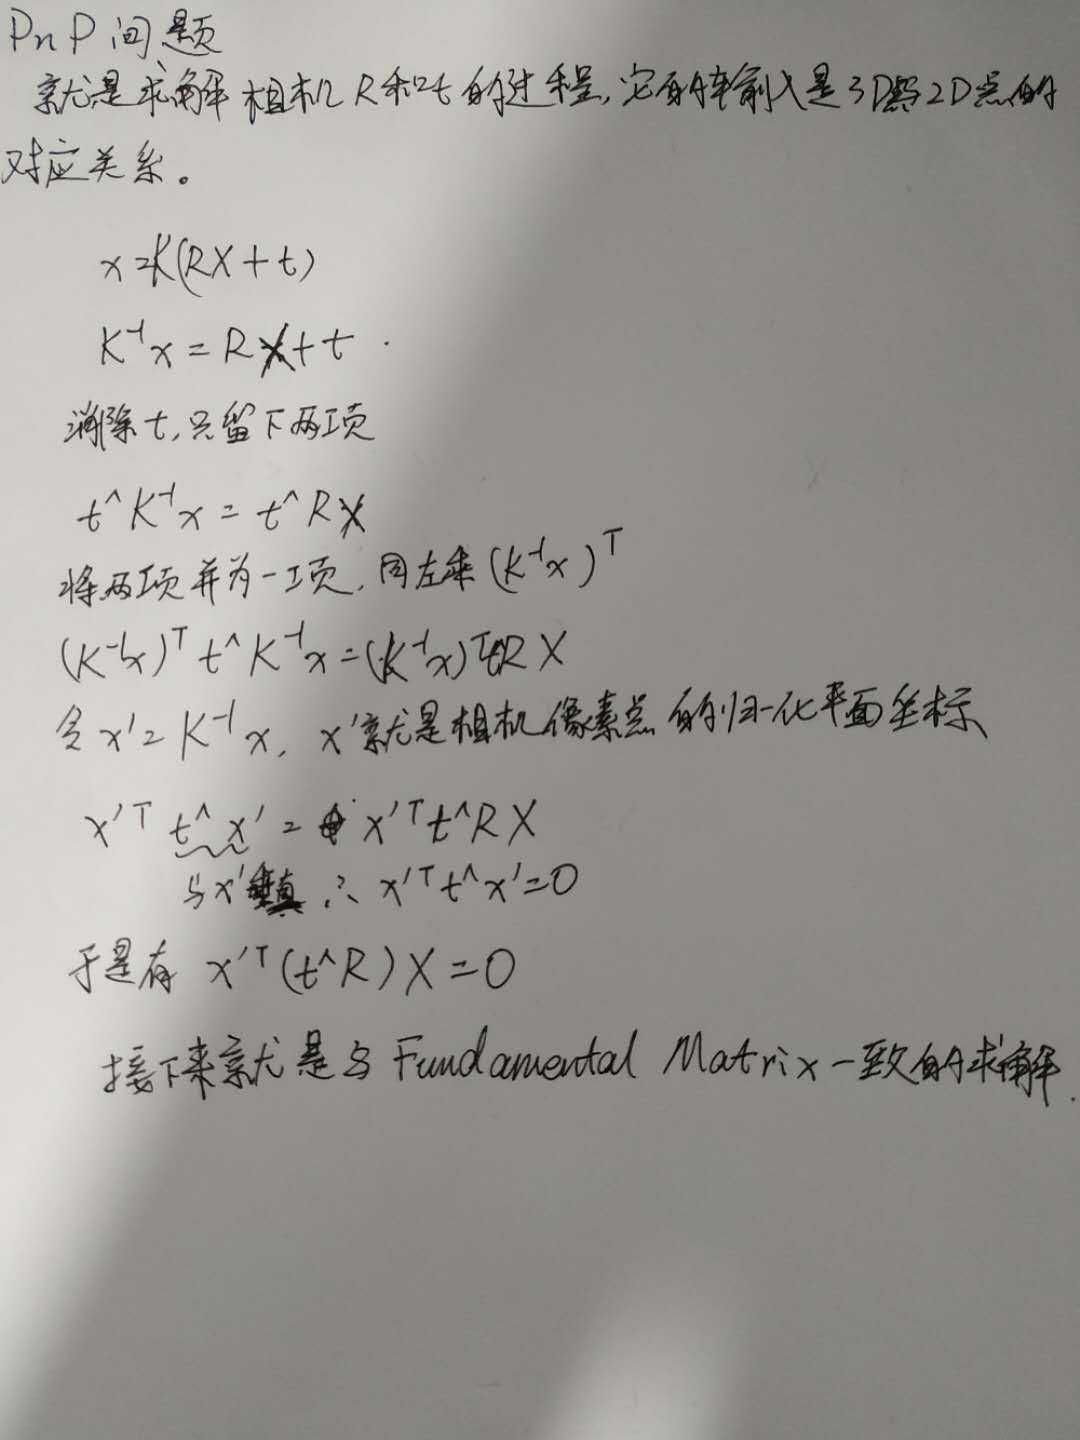 PnP问题
就是求解相机R和t的过程,它的输入是3D与2D点的
对应关系。
x=K(RX+t)
K⁻¹x=RX+t.
消除t,只留下两项
t^K⁻¹x=t^RX
将两项并为一项,同左乘(K⁻¹x)ᵀ
(K⁻¹x)ᵀt^K⁻¹x=(K⁻¹x)ᵀt^RX
令x'=K⁻¹x, x'就是相机像素点的归一化平面坐标
x'ᵀt^x'=x'ᵀt^RX
与x'垂直 ∴x'ᵀt^x'=0
于是有 x'ᵀ(t^R)X=0
接下来就是与Fundamental Matrix一致的求解.